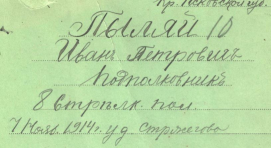 пр. Псковской губ.
Пыляй 10
Иванъ Петровичъ
Подполковникъ
8 Стрѣлк. пол.
7 Нояб. 1914 г. у д. Стржегово